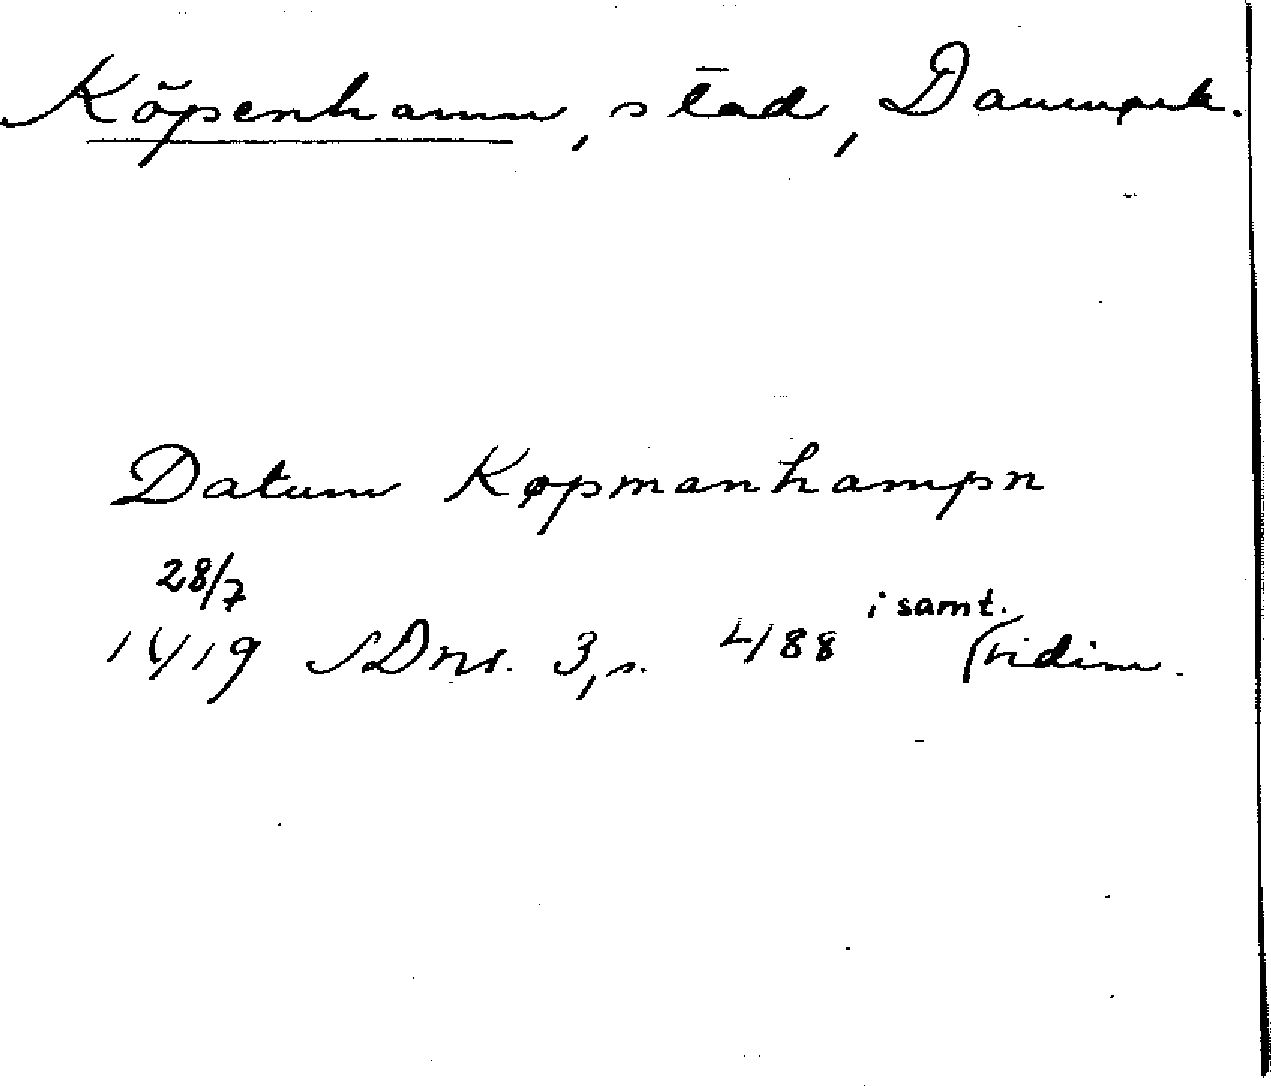 Köpenhamn, stad, Danmark.
Datum Køpmanhampn
28/7
1419 SDns. 3, s. 488 i samt. vidim.